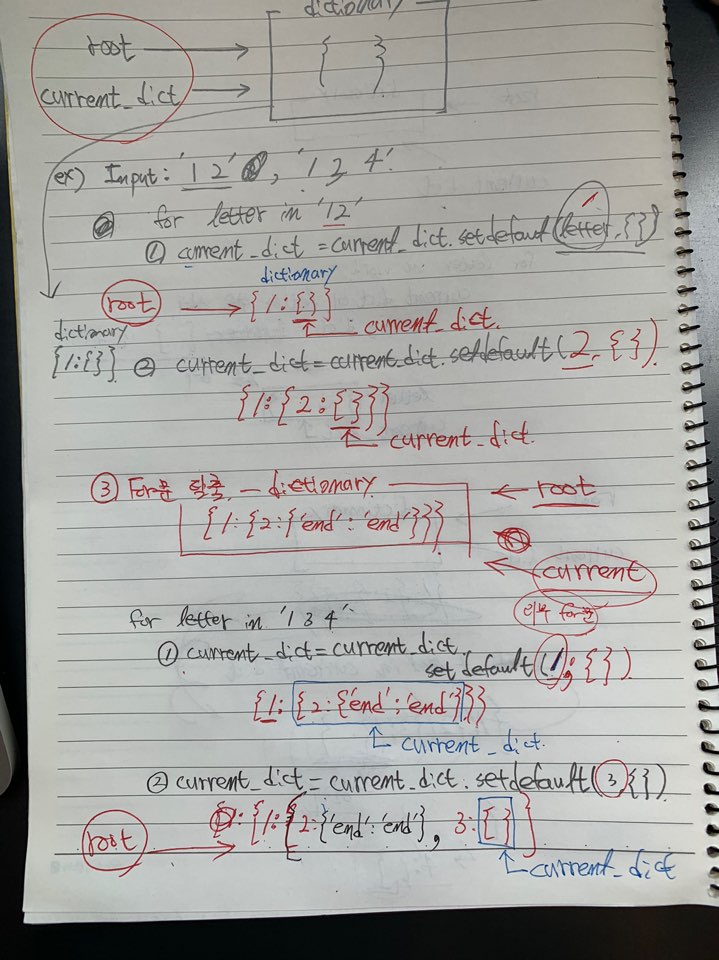 dictionary
root → { }
current_dict →
ex) Input: '1 2' , '1 3 4'.
for letter in '12'
① current_dict = current_dict.setdefault(letter, {})
dictionary
root → {1:{}}
current_dict.
dictionary
{1:{}} ② current_dict = current_dict.setdefault(2, {}).
{1:{2:{}}}
current_dict.
③ For문 탈출. — dictionary
← root
{1:{2:{'end':'end'}}}
← current
for letter in '1 3 4'
① current_dict = current_dict.
setdefault(1, {})
{1:{2:{'end':'end'}}}
current_dict.
② current_dict = current_dict.setdefault(3 {}).
root → {1:{2:{'end':'end'}, 3:{ }}
current_dict